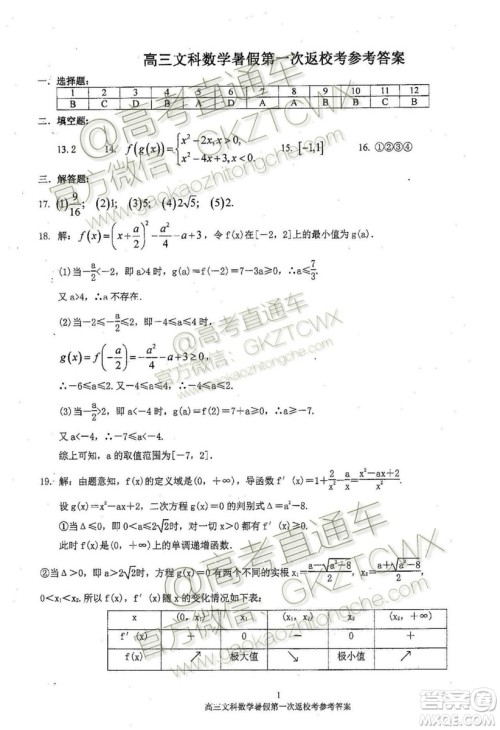 高三文科数学暑假第一次返校考参考答案
一. 选择题:
1 2 3 4 5 6 7 8 9 10 11 12
二. 填空题:
13. 2 14. f(g(x))={x²-2x,x>0, x²-4x+3,x<0. 15. [-1,1] 16. ①②③④
三. 解答题:
17. (1) 9/16; (2)1; (3)5; (4)2; (5)2.
18. 解: f(x)=(x+a/2)²-a²/4-a+3, 令 f(x)在[-2, 2]上的最小值为 g(a).
(1)当-a/2<-2, 即 a>4 时, g(a)=f(-2)=7-3a≥0, ∴a≤7/3.
又 a>4, ∴a 不存在.
(2)当-2≤-a/2≤2, 即-4≤a≤4 时,
g(x)=f(-a/2)=-a²/4-a+3≥0,
∴-6≤a≤2. ∴-4≤a≤2.
(3)当-a/2>2, 即 a<-4 时, g(a)=f(2)=7+a≥0, ∴a≥-7.
又 a<-4, ∴-7≤a<-4.
综上可知, a 的取值范围为[-7, 2].
19. 解: 由题意知, f(x)的定义域是(0, +∞), 导函数 f′(x)=1+2/x²-a/x=(x²-ax+2)/x².
设 g(x)=x²-ax+2, 二次方程 g(x)=0 的判别式Δ=a²-8.
①当Δ≤0, 即 0<a≤2√2时, 对一切 x>0 都有 f′(x)≥0.
此时 f(x)是(0, +∞)上的单调递增函数.
②当Δ>0, 即 a>2√2时, 方程 g(x)=0 有两个不同的实根 x₁=(a-√(a²-8))/2, x₂=(a+√(a²-8))/2,
0<x₁<x₂. 所以 f(x)、f′(x)随 x 的变化情况如下表:
x (0, x₁) x₁ (x₁, x₂) x₂ (x₂, +∞)
f′(x) + 0 - 0 +
f(x) ↗ 极大值 ↘ 极小值 ↗
1
高三文科数学暑假第一次返校考参考答案
@高考直通车
官方微信：GKZTCWX
www.gaokaozhitongche.com
@高考直通车
官方微信：GKZTCWX
www.gaokaozhitongche.com